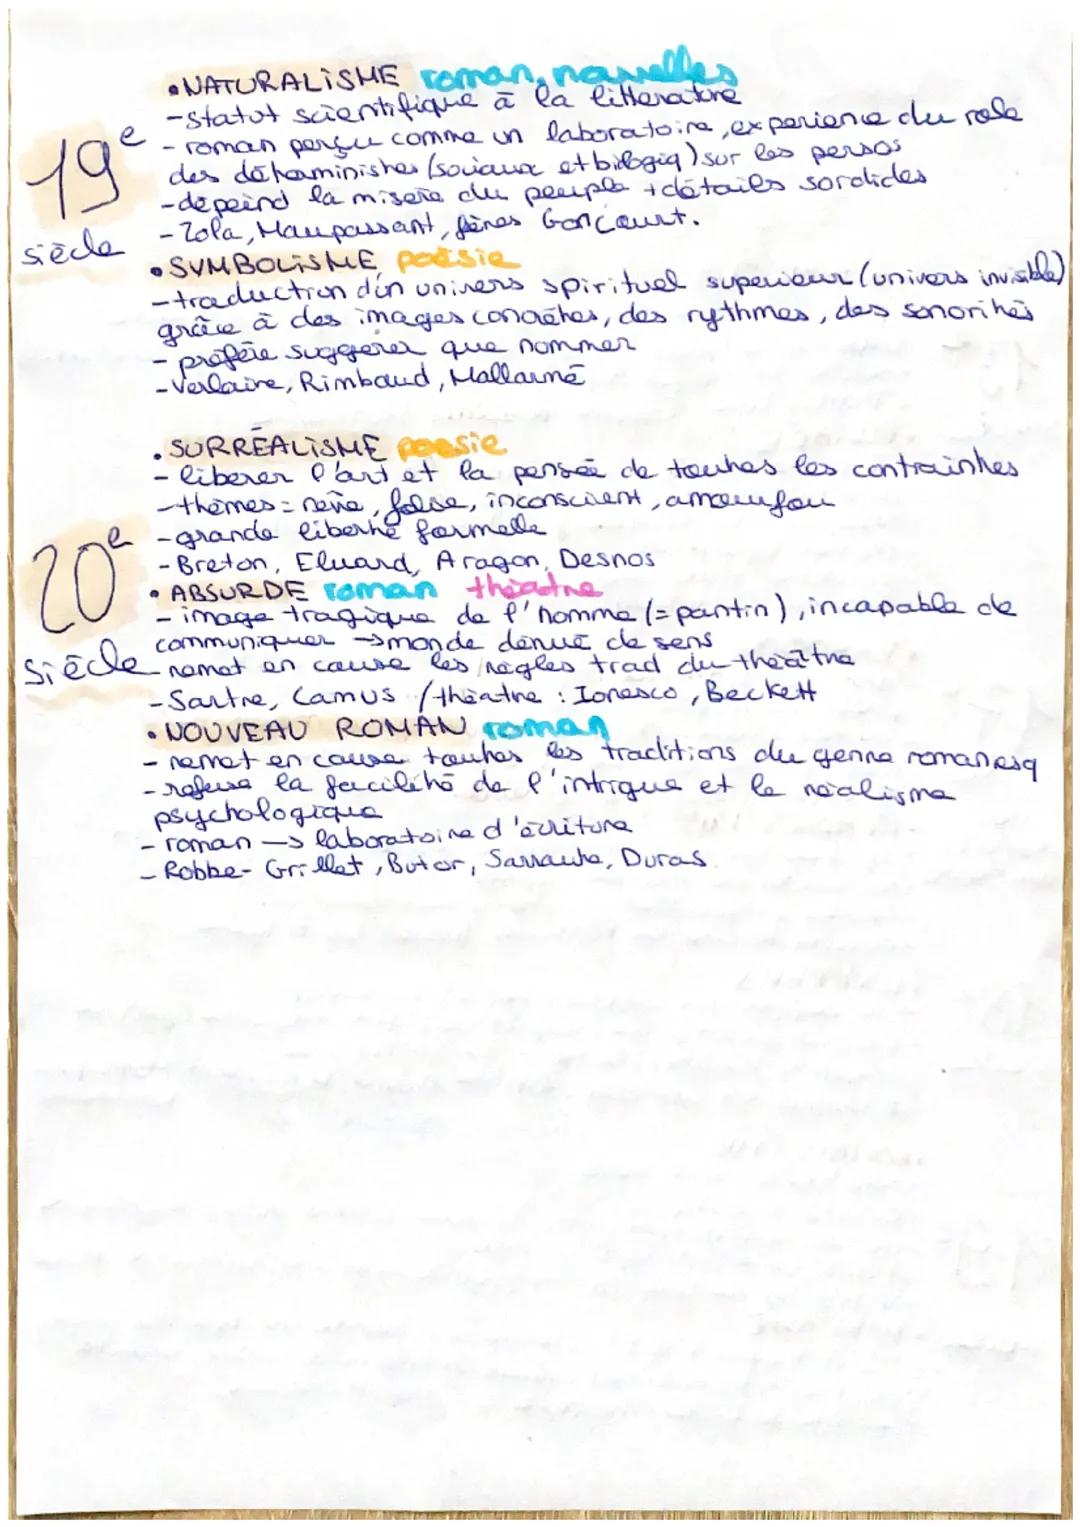 •NATURALISME roman, nouvelles
-statut scientifique à la littérature
19e
- roman perçu comme un laboratoire, experience du role
des déterministes (sociaux et biologiq) sur les persos
-dépeind la misère du peuple + détails sordides
siècle
-Zola, Maupassant, frères Goncourt.
•SYMBOLISME poésie
-traduction d'un univers spirituel superieur (univers invisible)
grâce à des images concrètes, des rythmes, des sonorités
- préfère suggerer que nommer
-Verlaine, Rimbaud, Mallarmé
•SURRÉALISME poesie
- liberer l'art et la pensée de toutes les contraintes
-thèmes = rêve, folie, inconscient, amour fou
20e
-grande liberté formelle
-Breton, Eluard, Aragon, Desnos
•ABSURDE roman théatre
- image tragique de l'homme (= pantin), incapable de
communiquer →monde dénué de sens
siècle
-remet en cause les règles trad du théâtre
-Sartre, Camus / théatre : Ionesco, Beckett
•NOUVEAU ROMAN roman
- remet en cause toutes les traditions du genre romanesq
- refuse la facilité de l'intrigue et le réalisme
psychologique
- roman → laboratoire d'écriture
- Robbe-Grillet, Butor, Sarraute, Duras